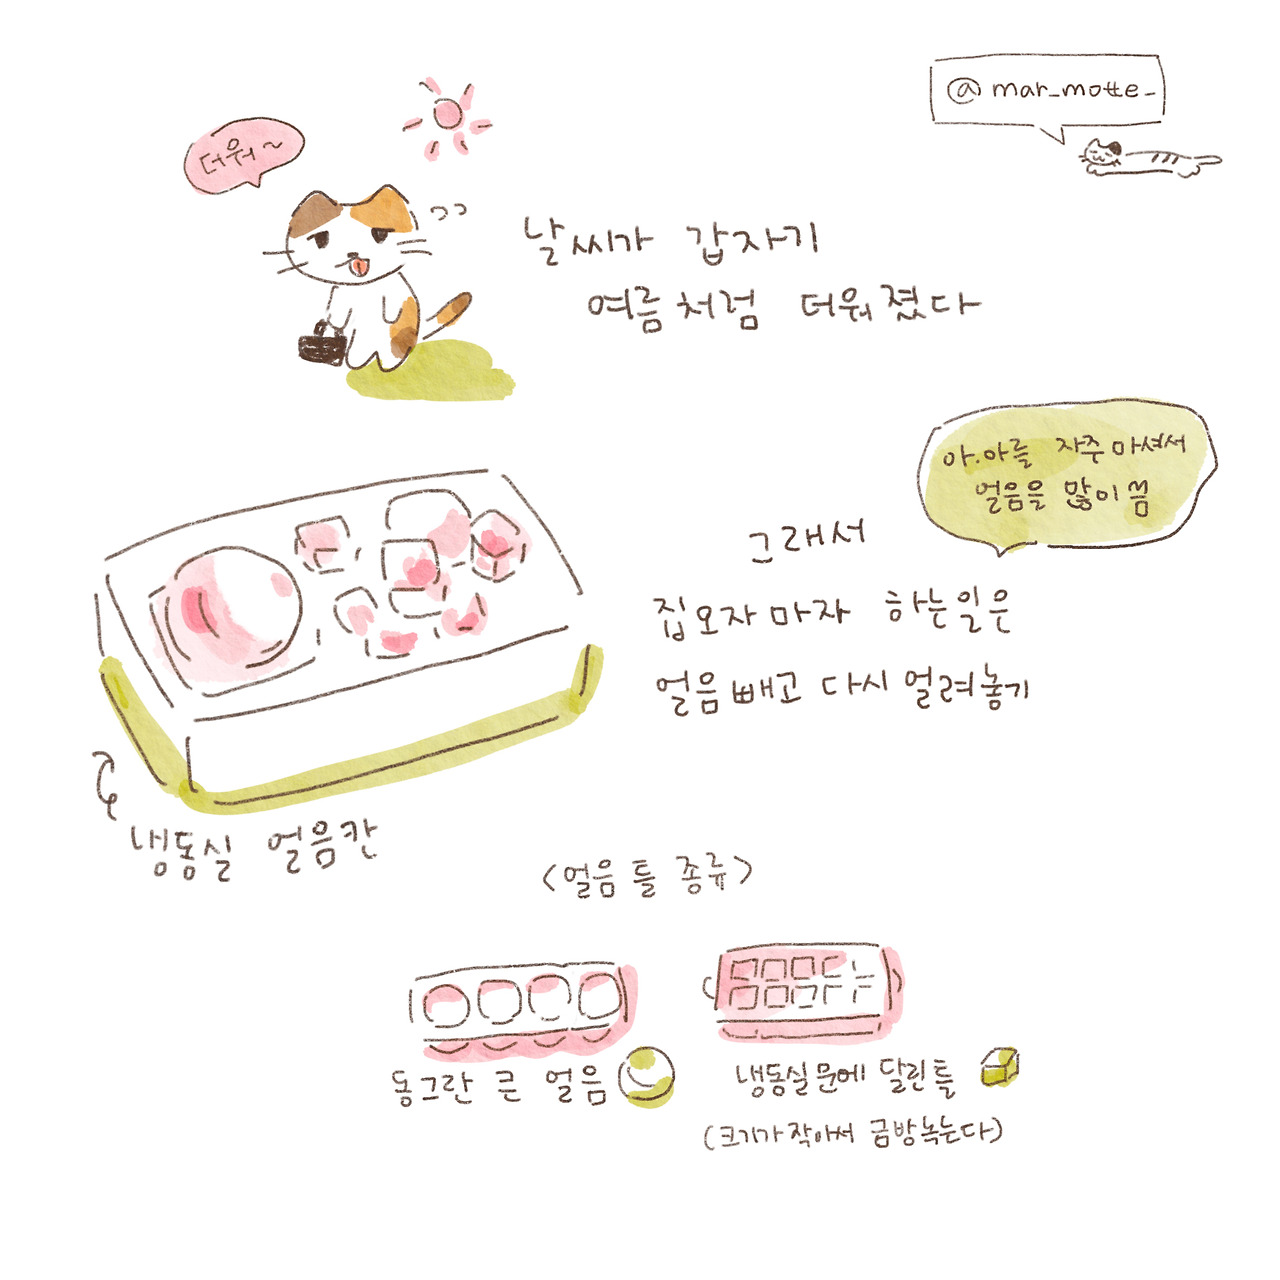 @mar_motte_
더워~
날씨가 갑자기
여름처럼 더워졌다
아.아를 자주 마셔서
얼음을 많이 씀
그래서
집오자마자 하는일은
얼음빼고 다시 얼려놓기
냉동실 얼음칸
<얼음 틀 종류>
동그란 큰 얼음
냉동실문에 달린틀
(크기가작아서 금방녹는다)